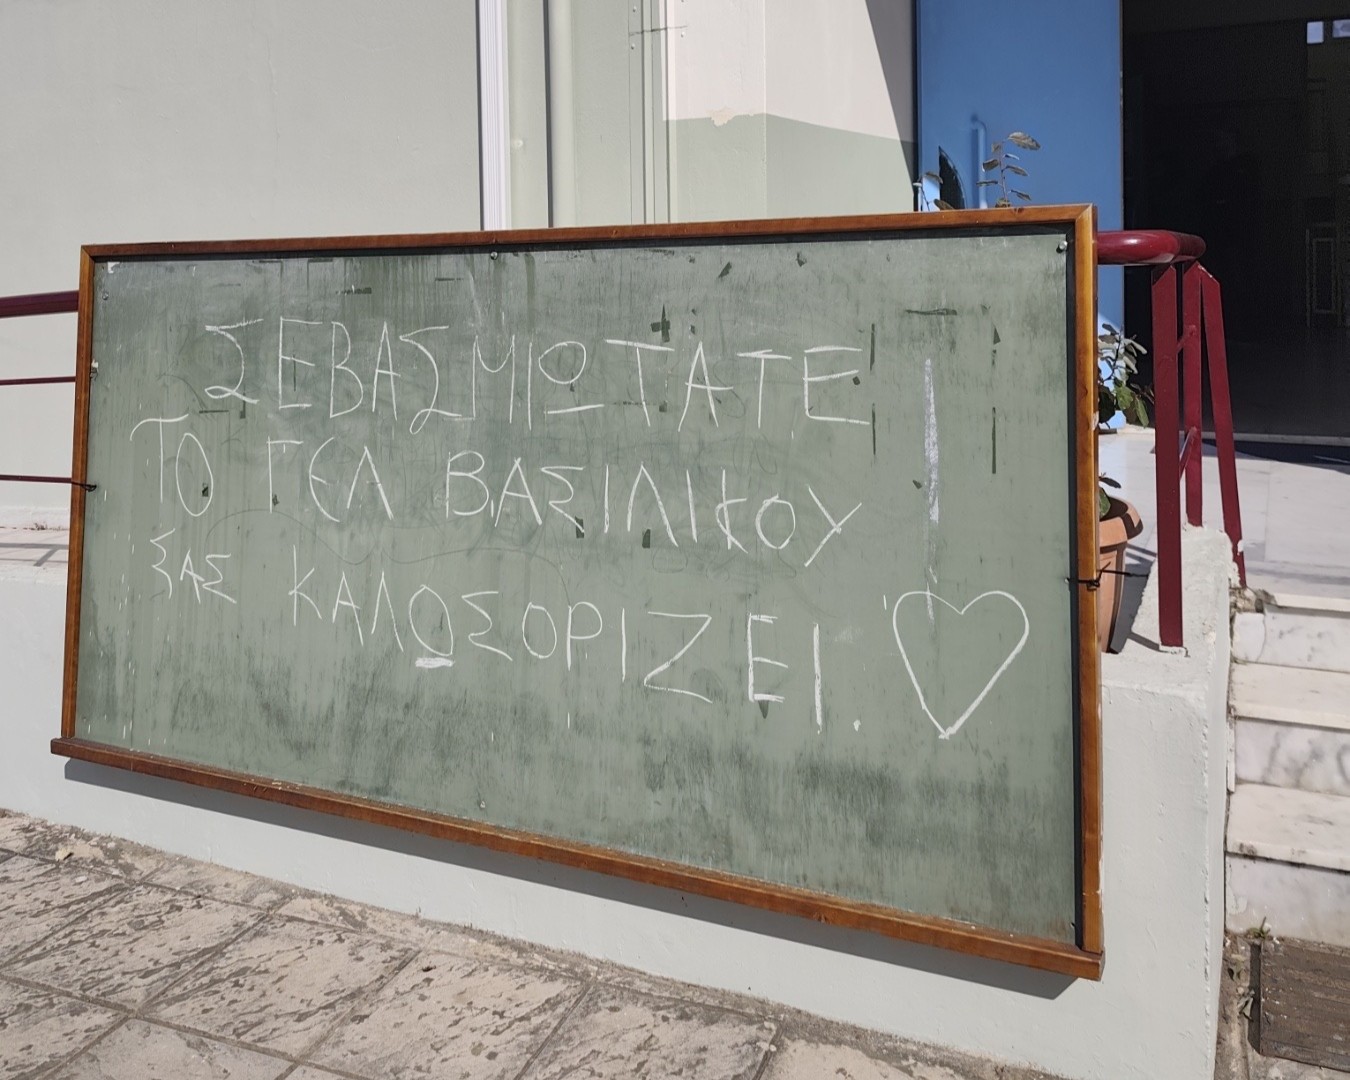 ΣΕΒΑΣΜΙΩΤΑΤΕ
ΤΟ ΓΕΛ ΒΑΣΙΛΙΚΟΥ
ΣΑΣ ΚΑΛΩΣΟΡΙΖΕΙ.